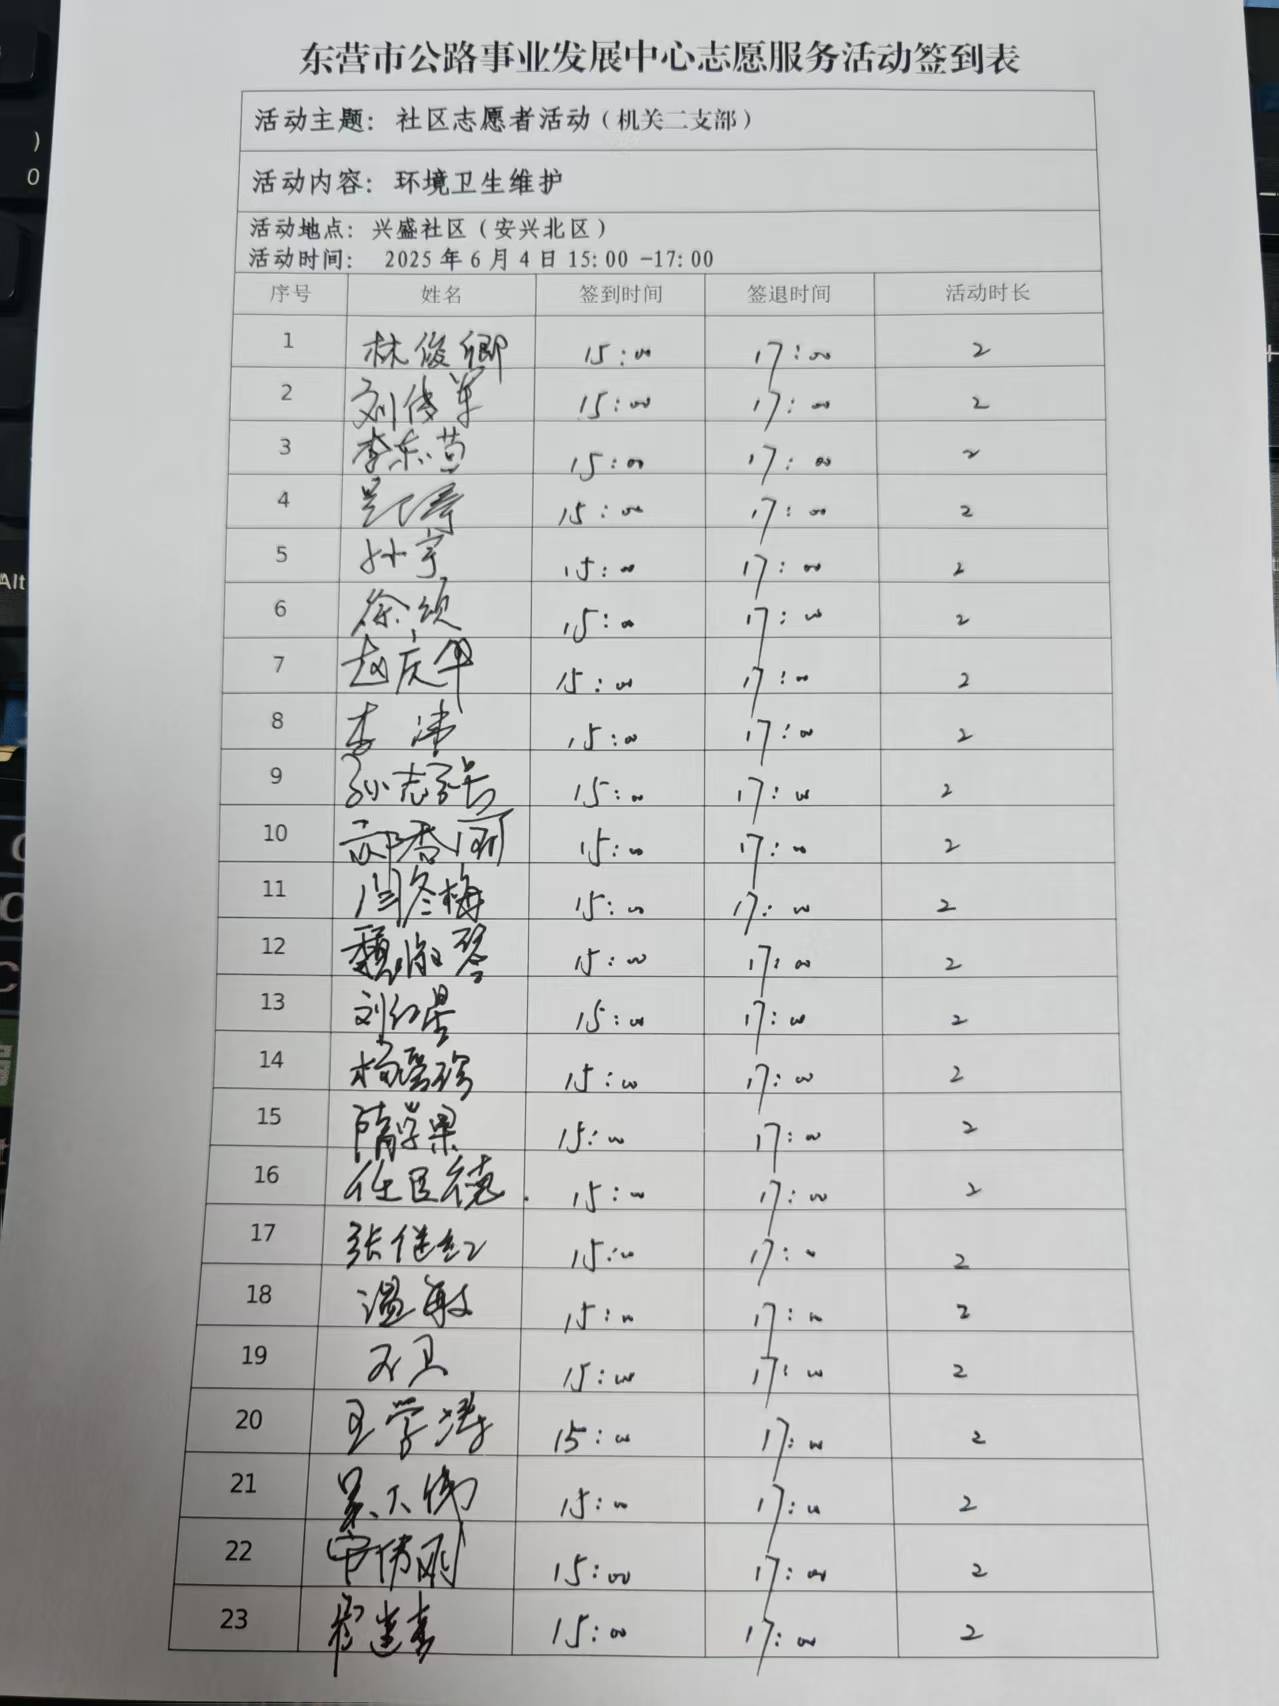 东营市公路事业发展中心志愿服务活动签到表
活动主题：社区志愿者活动（机关二支部）
活动内容：环境卫生维护
活动地点：兴盛社区（安兴北区）
活动时间： 2025年6月4日15:00-17:00
序号 姓名 签到时间 签退时间 活动时长
1 林俊卿 15:00 17:00 2
2 刘传军 15:00 17:00 2
3 李东 15:00 17:00 2
4 15:00 17:00 2
5 孙宇 15:00 17:00 2
6 徐颂 15:00 17:00 2
7 赵庆华 15:00 17:00 2
8 李 15:00 17:00 2
9 孙志强 15:00 17:00 2
10 香丽 15:00 17:00 2
11 闫冬梅 15:00 17:00 2
12 魏淑琴 15:00 17:00 2
13 刘红星 15:00 17:00 2
14 杨爱珍 15:00 17:00 2
15 隋学果 15:00 17:00 2
16 任臣德 15:00 17:00 2
17 张继红 15:00 17:00 2
18 温敏 15:00 17:00 2
19 15:00 17:00 2
20 王学涛 15:00 17:00 2
21 吴大伟 15:00 17:00 2
22 伟刚 15:00 17:00 2
23 建 15:00 17:00 2